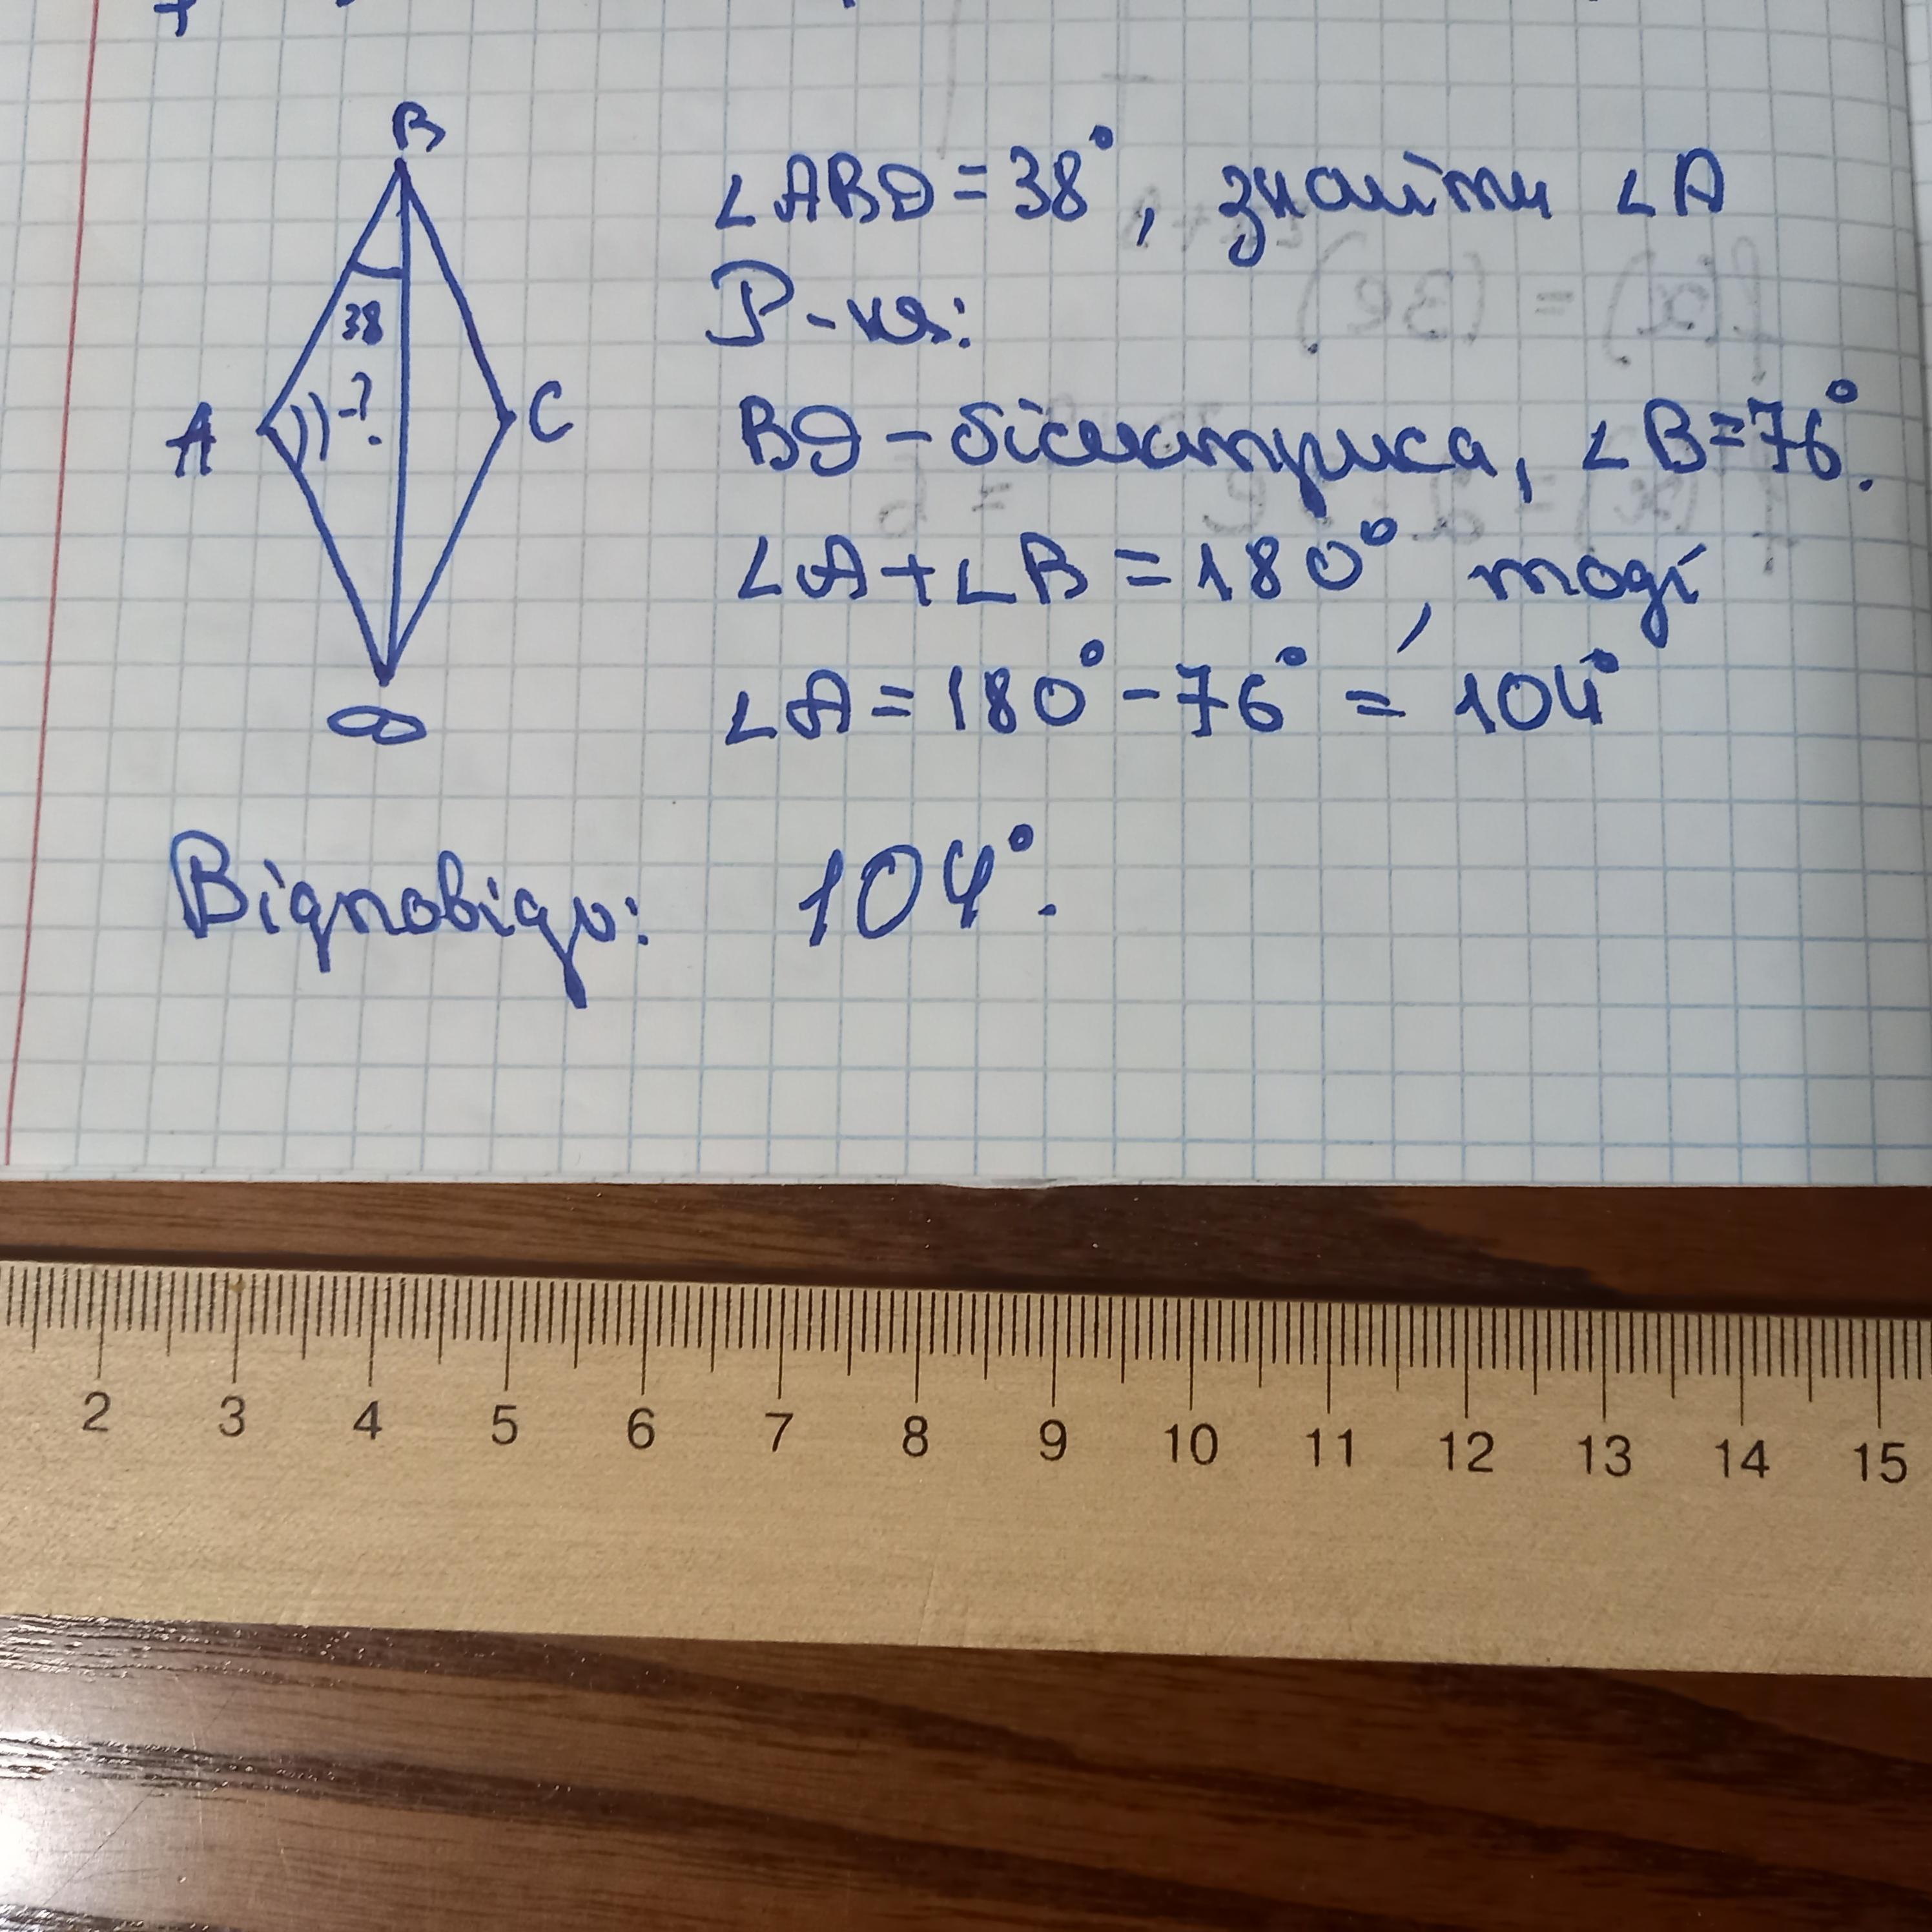 B
∠ABD = 38°, знайти ∠A
38
Р-ня:
A
-?
C
BD – бісектриса, ∠B = 76°.
∠A + ∠B = 180°, тоді
∠A = 180° - 76° = 104°
D
Відповідь: 104°.
2 3 4 5 6 7 8 9 10 11 12 13 14 15